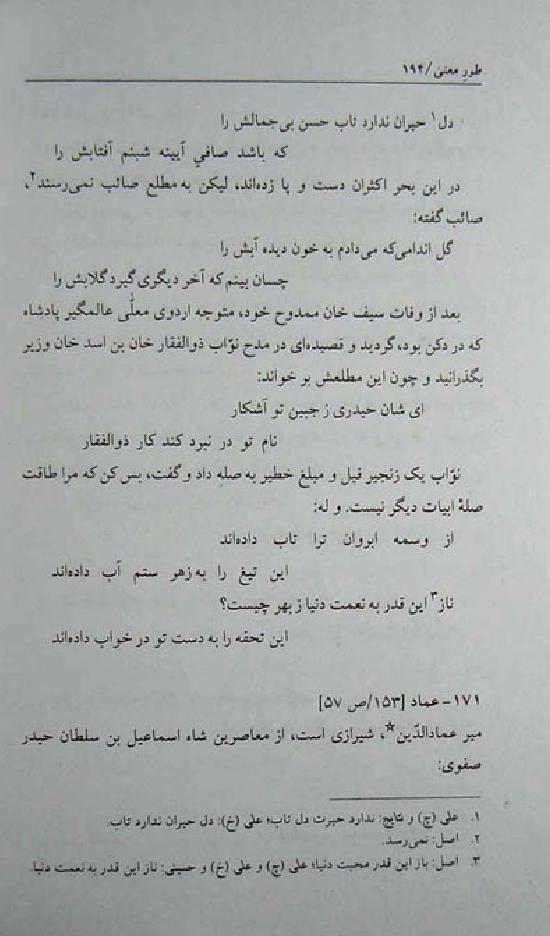 طورِ معنیٰ / ۱۹۴
دل۱ حیران ندارد تاب حسن بی‌جمالش را
که باشد صافیِ آیینه شبنم آفتابش را
در این بحر اکثران دست و پا زده‌اند، لیکن به مطلع صائب نمی‌رسند۲،
صائب گفته:
گل اندامی‌که می‌دادم به خون دیده آبش را
چسان بینم که آخر دیگری گیرد گلابش را
بعد از وفات سیف خان ممدوح خود، متوجه اردوی معلّٰی عالمگیر پادشاه
که در دکن بود، گردید و قصیده‌ای در مدح نوّاب ذوالفقار خان بن اسد خان وزیر
بگذرانید و چون این مطلعش بر خواند:
ای شان حیدری ز جبین تو آشکار
نام تو در نبرد کند کار ذوالفقار
نوّاب یک زنجیر فیل و مبلغ خطیر به صله داد و گفت، بس کن که مرا طاقت
صلهٔ ابیات دیگر نیست. و له:
از وسمه ابروان ترا تاب داده‌اند
این تیغ را به زهر ستم آب داده‌اند
ناز۳ این قدر به نعمت دنیا ز بهر چیست؟
این تحفه را به دست تو در خواب داده‌اند
۱۷۱- عماد [۱۵۳/ص ۵۷]
میر عمادالدّین*، شیرازی است، از معاصرین شاه اسماعیل بن سلطان حیدر
صفوی:
۱. علی (چ) و نتایج: ندارد حیرت دل تاب؛ علی (خ): دل حیران ندارد تاب.
۲. اصل: نمی‌رسد.
۳. اصل: باز این قدر محبت دنیا؛ علی (چ) و علی (خ) و حسینی: ناز این قدر به نعمت دنیا.